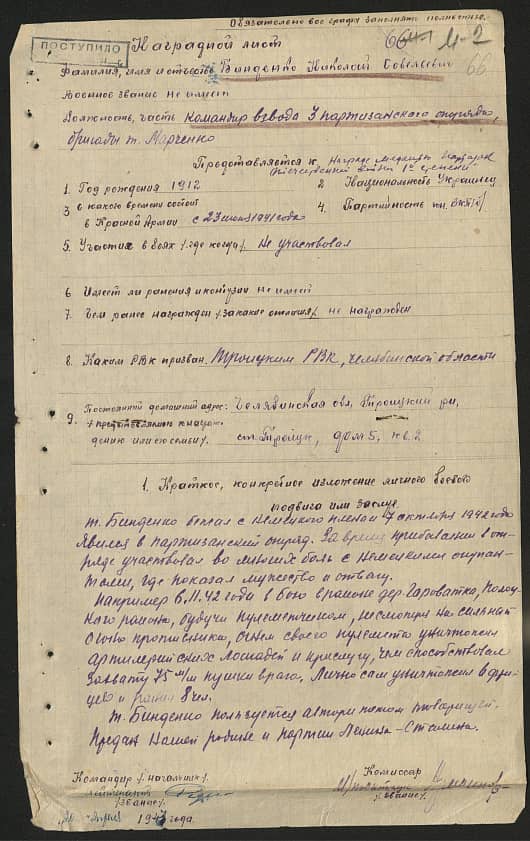 Обязательно все графы заполнять полностью.
ПОСТУПИЛО
Наградной лист
66
Фамилия, имя и отчество Бинденко Николай Савельевич
Военное звание не имеет
Должность, часть Командир взвода 3 партизанского отряда,
бригады т. Марченко
Представляется к награде медалью Партизан
Отечественной войны 1й степени
1. Год рождения 1912
2 Национальность Украинец
3 с какого времени состоит
в Красной Армии с 23 июня 1941 года
4. Партийность чл. ВКП(б)
5. Участие в боях /где когда/. Не участвовал
6 Имеет ли ранения и контузии не имеет
7. Чем ранее награжден /за какие отличия/. не награжден
8. Каким РВК призван. Троицким РВК, Челябинской области
9. Постоянный домашний адрес: Челябинская обл, Троицкий рн,
/представляемого к награж-
дению или его семьи/. ст. Троицк, дом 5, кв. 2
1. Краткое, конкретное изложение личного боевого
подвига или заслуг
т. Бинденко бежал с немецкого плена 7 октября 1942 года
явился в партизанский отряд. За время пребывания в от-
ряде участвовал во многих боях с немецкими оккупан-
тами, где показал мужество и отвагу.
Например 6.11.42 года в бою в районе дер. Гароватка, Полоц-
кого района, будучи пулеметчиком, несмотря на сильный
огонь противника, огнем своего пулемета уничтожил
артилерийских лошадей и прислугу, чем способствовал
захвату 75 м/м пушки врага. Лично сам уничтожил 6 фри-
цев и ранил 8 чел.
т. Бинденко пользуется авторитетом товарищей.
Предан нашей родине и партии Ленина-Сталина.
Командир /начальник/.
лейтенант
/звание/.
Комиссар
/звание/.
апреля 1943 года.